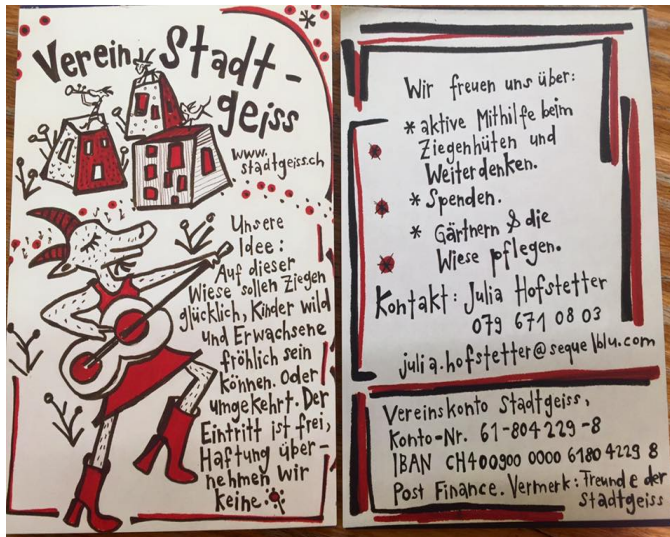 Verein Stadt-
geiss
www.
stadtgeiss.ch
Unsere
Idee:
Auf dieser
Wiese sollen Ziegen
glücklich, Kinder wild
und Erwachsene
fröhlich sein
können. Oder
umgekehrt. Der
Eintritt ist frei,
Haftung über-
nehmen wir
keine.
Wir freuen uns über:
* aktive Mithilfe beim
Ziegenhüten und
Weiterdenken.
* Spenden.
* Gärtnern & die
Wiese pflegen.
Kontakt: Julia Hofstetter
079 671 08 03
julia.hofstetter@sequelblu.com
Vereinskonto Stadtgeiss,
Konto-Nr. 61-804229-8
IBAN CH400900 0000 6180 4229 8
Post Finance. Vermerk: Freunde der
Stadtgeiss